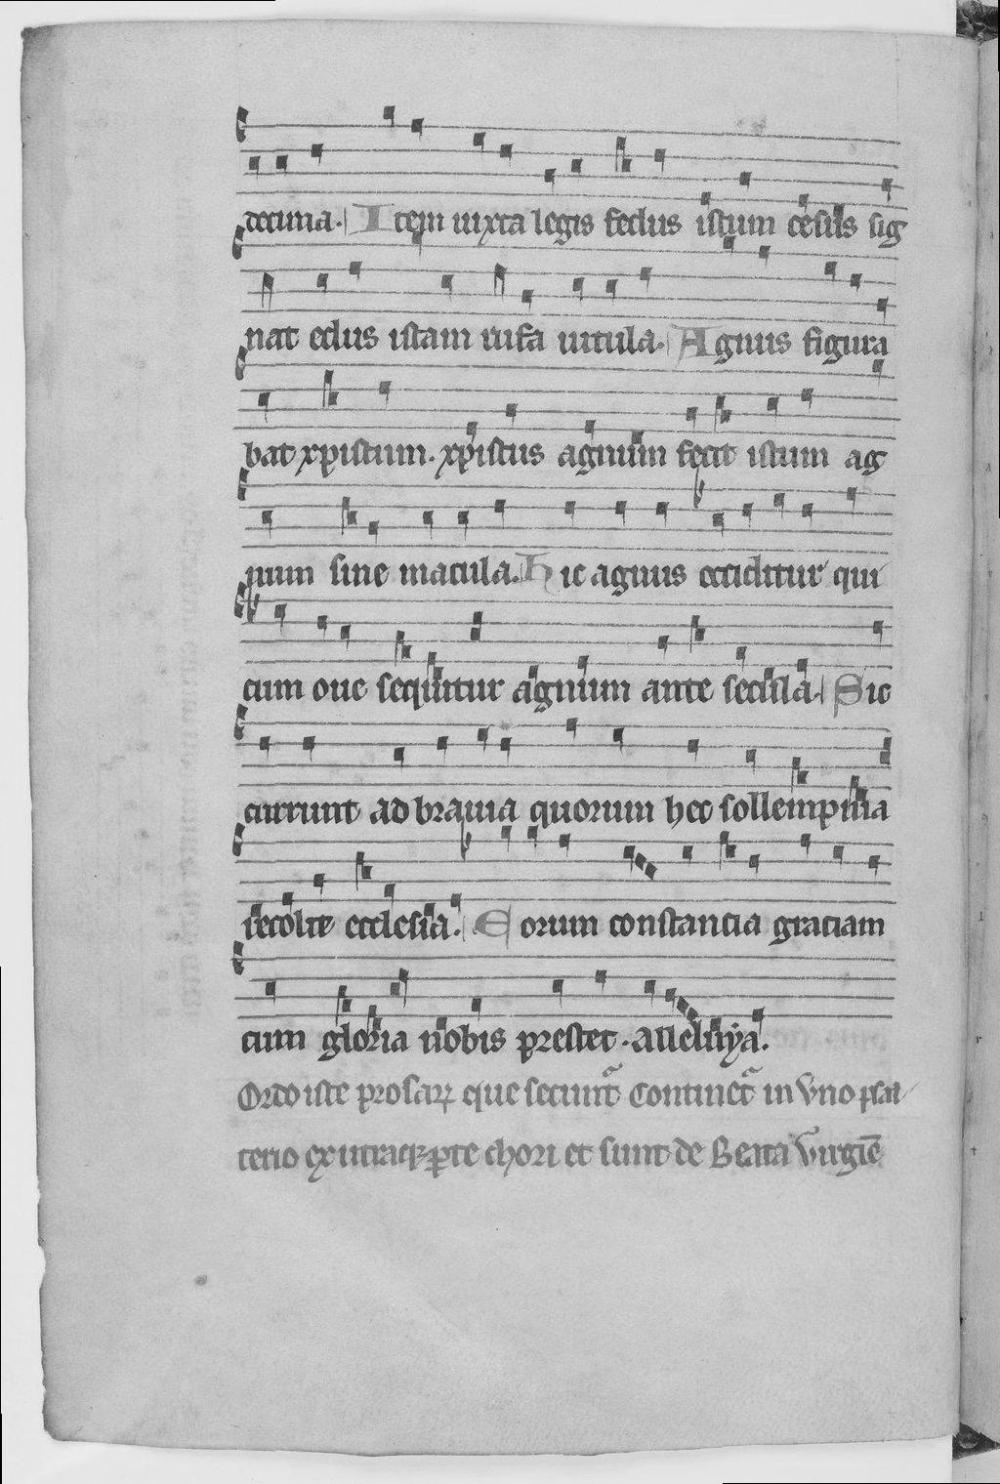 decima. Item iuxta legis fedus istum cesus sig
nat edus istam rufa uitula. Agnus figura
bat xpistum. xpistus agnum fecit istum ag
num sine macula. Hic agnus occiditur qui
cum oue sequitur agnum ante secula. Sic
currunt ad brauia quorum hec sollempnia
recolit ecclesia. Eorum constancia graciam
cum gloria nobis prestet. alleluya.
Ordo iste prosaꝝ que secunt᷑ continet᷑ in vno psal
terio ex utraqꝫ ꝑte chori et sunt de Beata virgīe